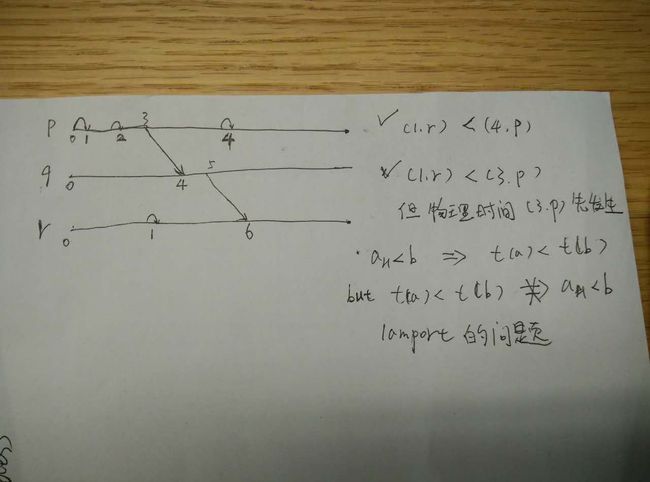 p 0 1 2 3 4
q 0 4 5
r 0 1 6
✓ (1.r) < (4.p)
✓ (1.r) < (3.p)
但物理时间 (3.p) 先发生
· a H< b ⇒ t(a) < t(b)
but t(a) < t(b) ⇏ a H< b
lamport 的问题